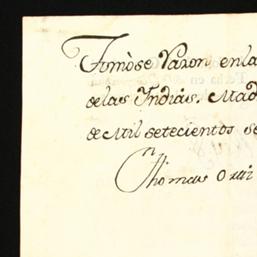 Tomòse Razon en la
de las Indias. Mad
de Mil setecientos se
Thomas Orti